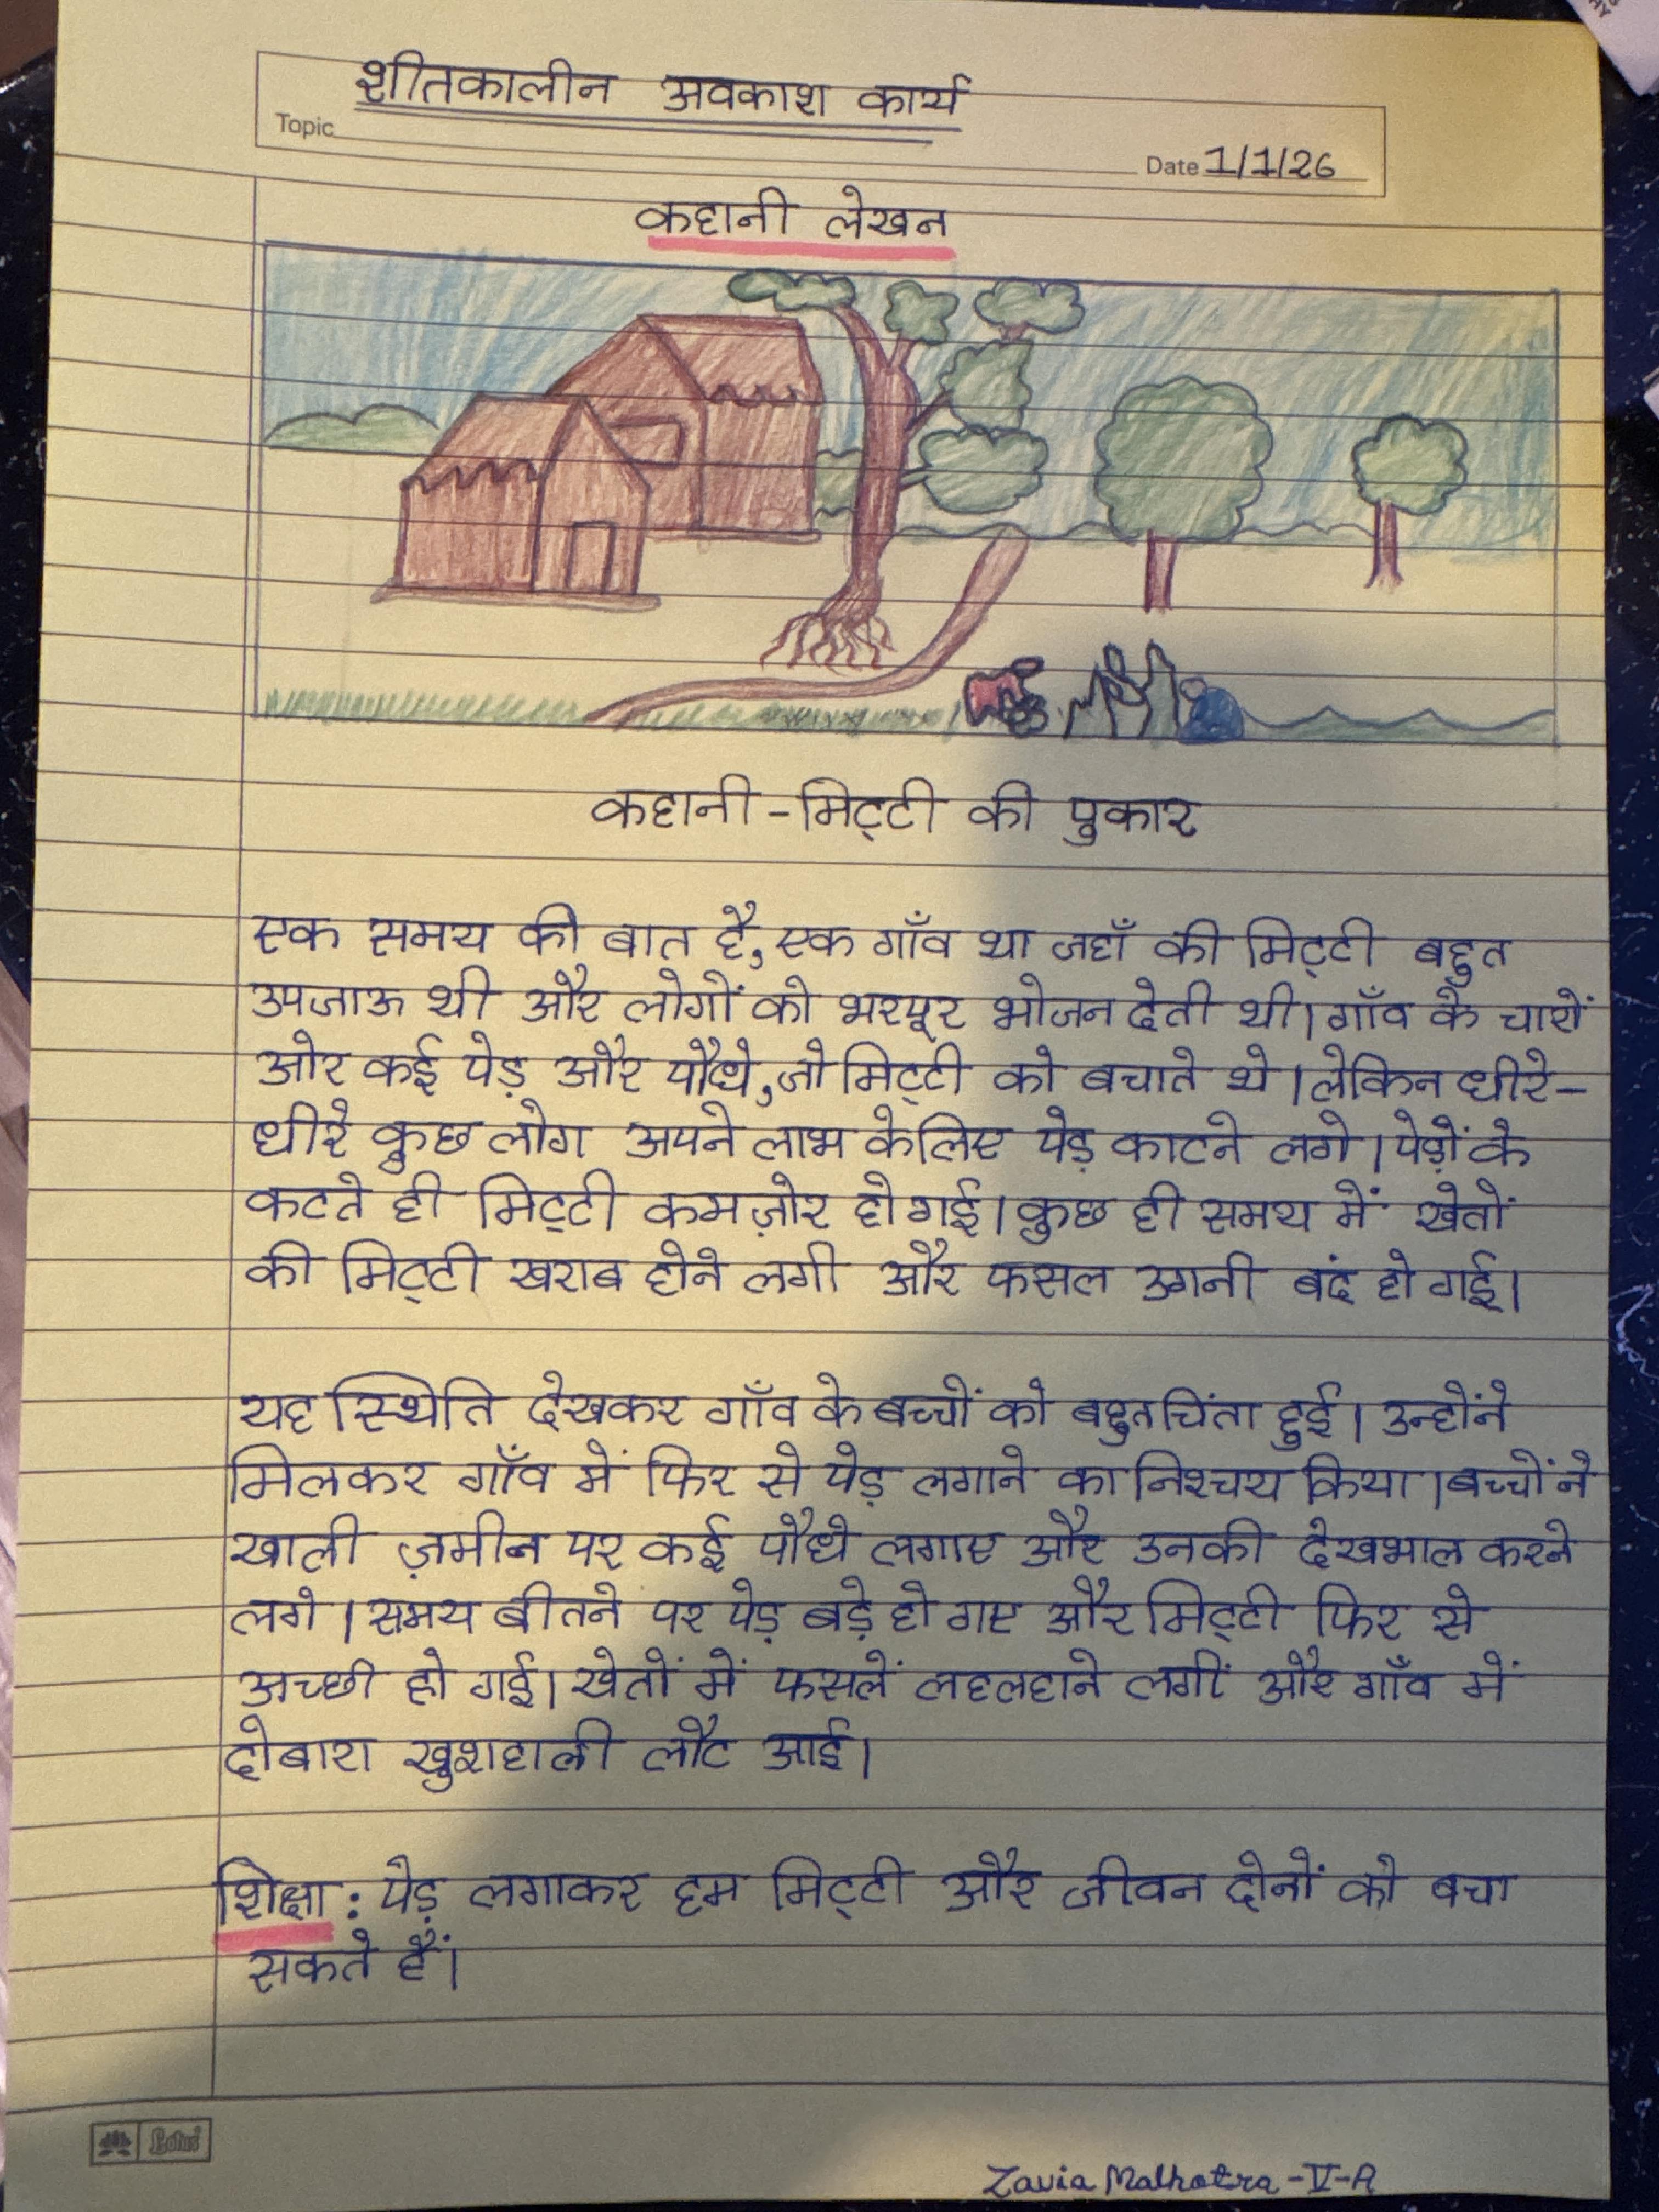 शीतकालीन अवकाश कार्य
Topic
Date 1/1/26
कहानी लेखन
कहानी - मिट्टी की पुकार
एक समय की बात है, एक गाँव था जहाँ की मिट्टी बहुत
उपजाऊ थी और लोगों को भरपूर भोजन देती थी। गाँव के चारों
ओर कई पेड़ और पौधे, जो मिट्टी को बचाते थे। लेकिन धीरे-
धीरे कुछ लोग अपने लाभ के लिए पेड़ काटने लगे। पेड़ों के
कटते ही मिट्टी कमज़ोर हो गई। कुछ ही समय में खेतों
की मिट्टी खराब होने लगी और फसल उगनी बंद हो गई।
यह स्थिति देखकर गाँव के बच्चों को बहुत चिंता हुई। उन्होंने
मिलकर गाँव में फिर से पेड़ लगाने का निश्चय किया। बच्चों ने
खाली ज़मीन पर कई पौधे लगाए और उनकी देखभाल करने
लगे। समय बीतने पर पेड़ बड़े हो गए और मिट्टी फिर से
अच्छी हो गई। खेतों में फसलें लहलहाने लगीं और गाँव में
दोबारा खुशहाली लौट आई।
शिक्षा: पेड़ लगाकर हम मिट्टी और जीवन दोनों को बचा
सकते हैं।
Lotus
Zavia Malhotra - V-A